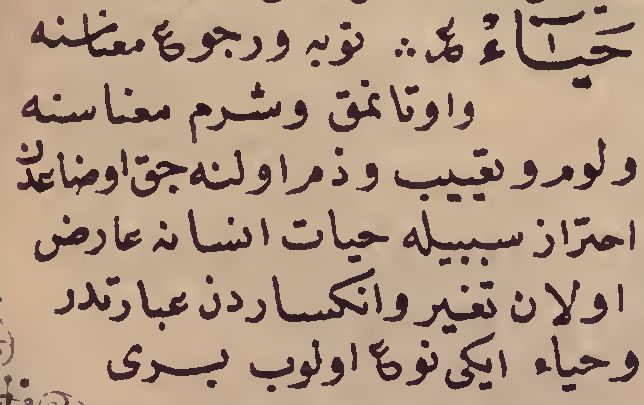 حَيَاءْ ع ∴ توبه و رجوع معناسنه
و اوتانمق و شرم معناسنه
و لوم و تعييب و ذم اولنه جق اوضاعدن
احتراز سببيله حيات انسانه عارض
اولان تغير و انكساردن عبارتدر
و حياء ايكى نوع اولوب برى